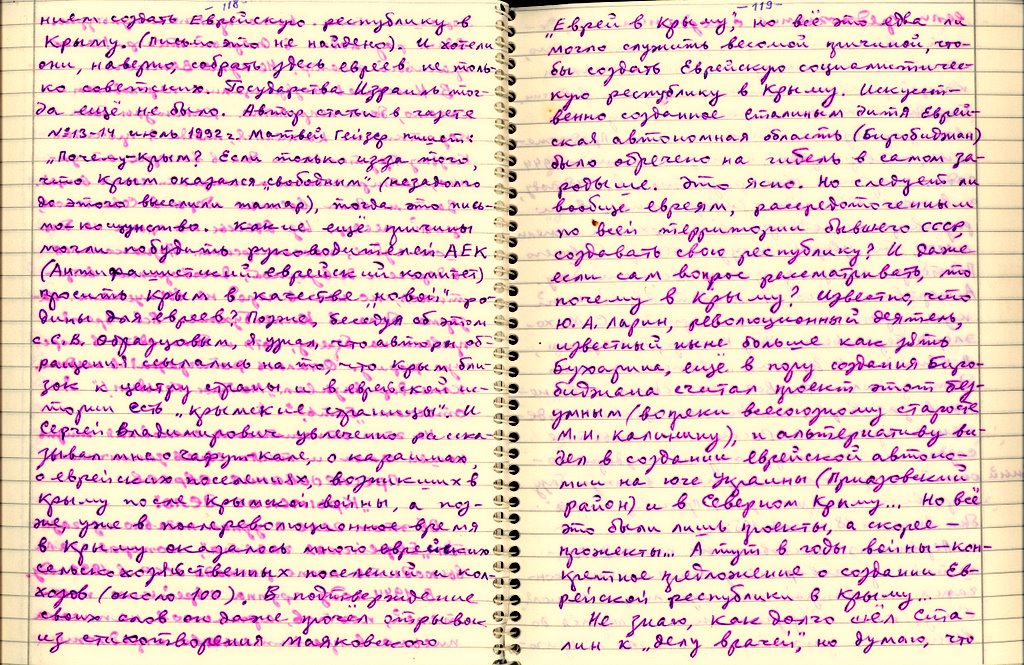 – 118 –
нием создать Еврейскую республику в
Крыму. (Письмо это не найдено). И хотели
они, наверно, собрать здесь евреев не толь-
ко советских. Государства Израиль тог-
да ещё не было. Автор статьи в газете
№13-14 июль 1992 г. Матвей Гейзер пишет:
„Почему-Крым? Если только из-за того,
что Крым оказался „свободным" (незадолго
до этого выселили татар), тогда это пись-
мо-кощунство. Какие ещё причины
могли побудить руководителей АЕК
(Антифашистский еврейский комитет)
просить Крым в качестве „новой" ро-
дины для евреев? Позже, беседуя об этом
с С.В. Образцовым, я узнал, что авторы об-
ращения ссылались на то, что Крым бли-
зок к центру страны и в еврейской ис-
тории есть „крымские страницы". И
Сергей Владимирович увлечённо расска-
зывал мне о Чафут-Кале, о караимах,
о еврейских поселениях, возникших в
Крыму после Крымской войны, а поз-
же, уже в послереволюционное время
в Крыму оказалось много еврейских
сельскохозяйственных поселений и кол-
хозов (около 100). В подтверждение
своих слов он даже прочёл отрывок
из стихотворения Маяковского
– 119 –
„Еврей в Крыму", но всё это едва ли
могло служить весомой причиной, что-
бы создать Еврейскую социалистичес-
кую республику в Крыму. Искусст-
венно созданное Сталиным дитя Еврей-
ская автономная область (Биробиджан)
было обречено на гибель в самом за-
родыше. Это ясно. Но следует ли
вообще евреям, рассредоточенным
по всей территории бывшего СССР,
создавать свою республику? И даже
если сам вопрос рассматривать, то
почему в Крыму? Известно, что
Ю.А. Ларин, революционный деятель,
известный ныне больше как зять
Бухарина, ещё в пору создания Биро-
биджана считал проект этот без-
умным (вопреки всесоюзному старосте
М.И. Калинину), и альтернативу ви-
дел в создании еврейской автоно-
мии на юге Украины (Приазовский
район) и в Северном Крыму... Но всё
это были лишь проекты, а скорее –
прожекты... А тут в годы войны – кон-
кретное предложение о создании Ев-
рейской республики в Крыму...
Не знаю, как долго шёл Ста-
лин к „делу врачей", но думаю, что